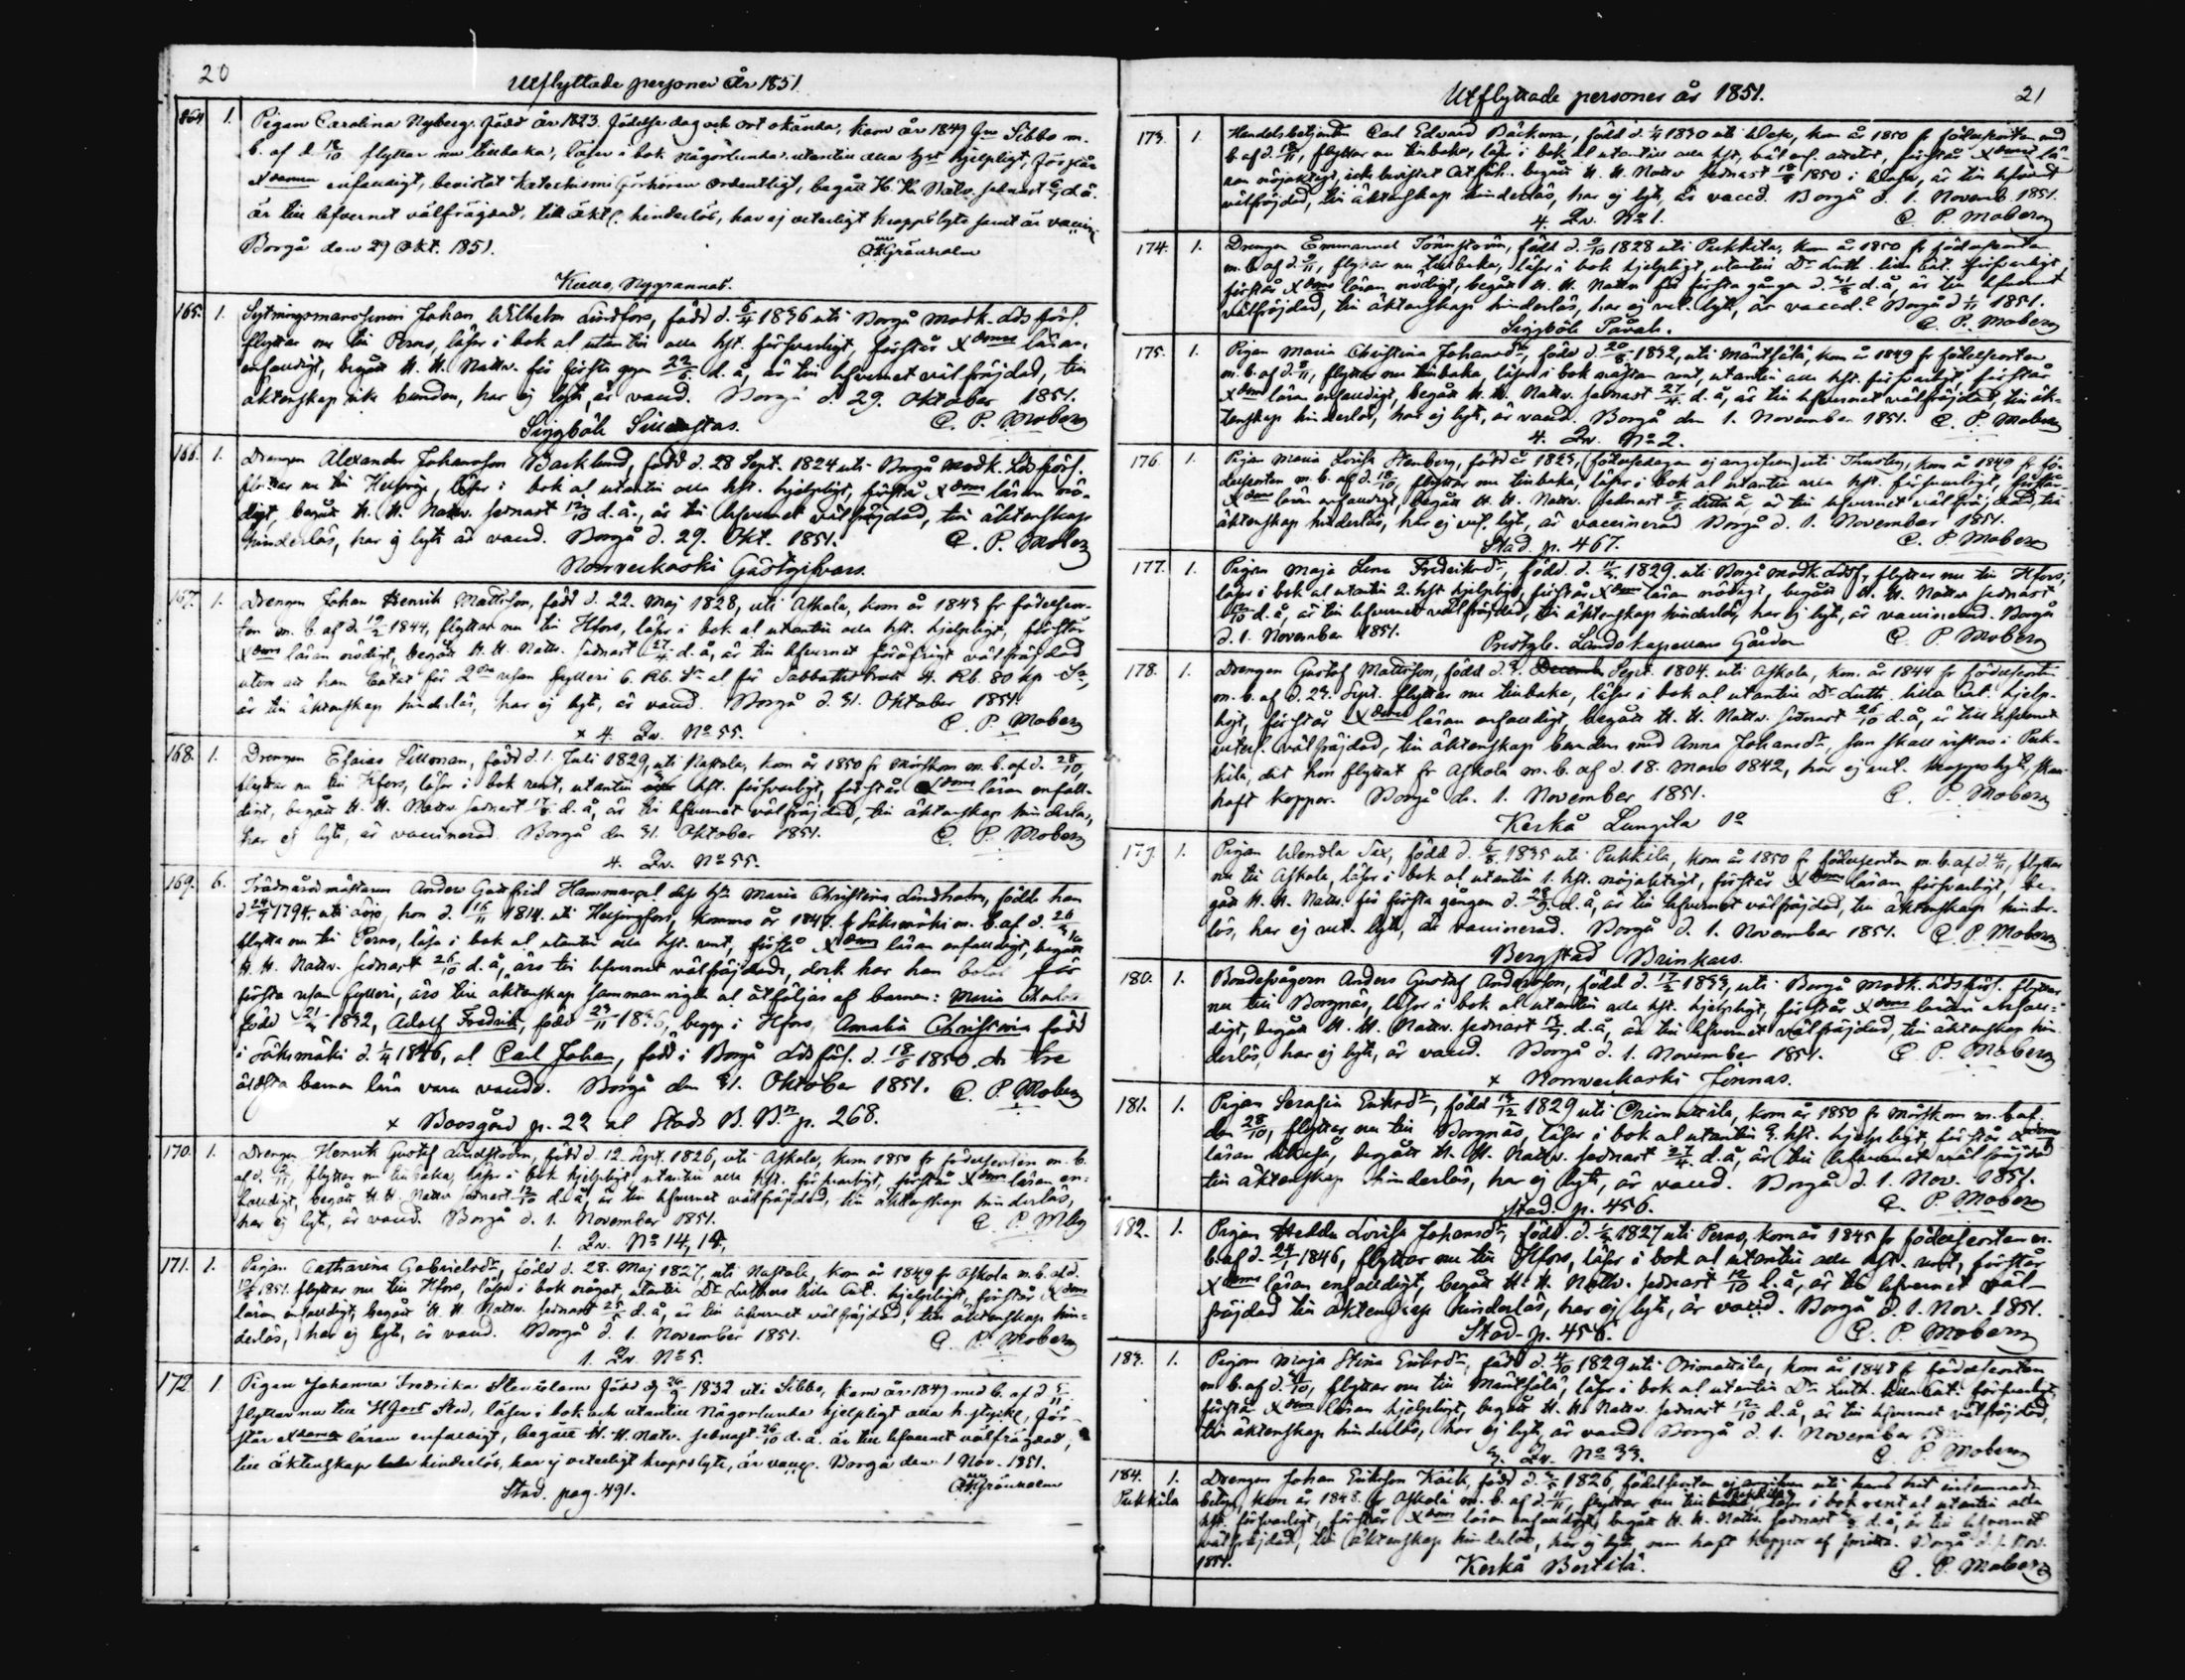 20
Utflyttade personer År 1851.
164 1. Pigan Carolina Nyberg. född år 1823. födelse dag och ort okända, kom år 1849 från Sibbo m.
b. af d. 18/10 flyttar nu tillbaka, läser i bok någorlunda, utantill alla hjelpligt, förstår
Xdomen enfaldigt, bevistat Katechismi förhören ordentligt, begått H. H. Nattv. sednast d. å.
är till lefvernet välfräjdad, till äkt. hinderlös, har ej veterligt kroppslyte samt är vaccin
Borgå den 29 Okt. 1851. Grönholm
Nygrannas.
165. 1. Sytningsmanssonen Johan Wilhelm Lindfors, född d. 6/4 1836 uti Borgå modk. Lds förs.
flyttar nu till Perno, läser i bok al utantill alla hst. försvarligt, förstår Xdoms läran
enfaldigt, begått H. H. Nattv. för första ggn 22/6 d. å, är till lefvernet välfräjdad, till
äktenskap icke bunden, har ej lyte, är vaccd. Borgå d. 29. Oktober 1851.
Siggböle C. P. Moberg
166. 1. Drengen Alexander Johansson Backlund, född d. 28 Sept. 1824 uti Borgå modk. Lds förs.
flyttar nu till Helsinge, läser i bok al utantill alla hst. hjelpligt, förstår Xdoms läran nö-
digt, begått H. H. Nattv. sednast 12/10 d. å., är till lefvernet välfräjdad, till äktenskap
hinderlös, har ej lyte är vaccd. Borgå d. 29. Okt. 1851. C. P. Moberg
Norrveckoski Gästgifvars.
167. 1. Drengen Johan Henrik Mattsson, född d. 22. Maj 1828, uti Askola, kom år 1843 fr födelseor-
ten m. b. af d. 19/2 1844, flyttar nu till Hfors, läser i bok al utantill alla hst. hjelpligt, förstår
Xdoms läran nödigt, begått H. H. Nattv. sednast 27/4 d. å, är till lefvernet föröfrigt välfräjdad
utom att han bötat för 2dra resan fylleri 6. Rb. Sr al för Sabbatsbrott 4. Rb. 80 kp Sr,
är till äktenskap hinderlös, har ej lyte, är vaccd. Borgå d. 31. Oktober 1851.
+ 4. Qv. No 55. C. P. Moberg
168. 1. Drengen Esaias Sillman, född d. 1. Juli 1829, uti Nastola, kom år 1850 fr Mörskom m. b. af d. 28/10,
flyttar nu till Hfors, läser i bok rent, utantill hst. försvarligt, förstår Xdoms läran enfal-
digt, begått H. H. Nattv. sednast d. å, är till lefvernet välfräjdad, till äktenskap hinderlös,
har ej lyte, är vaccinerad. Borgå den 31. Oktober 1851. C. P. Moberg
4. Qv. No 55.
169. 6. Trädgårdsmästaren Anders Gustfrid Hammar al dess hu Maria Christina Lindholm, födde han
d. 24/9 1794. uti Lojo, hon d. 16/11 1814. uti Helsingfors, komne år 1847. fr m. b. af d. 26
flytta nu till Perno, läsa i bok al utantill alla hst. rent, förstå Xdoms läran enfaldigt, begått
H. H. Nattv. sednast 26/10 d. å, äro till lefvernet välfräjdade, dock har han bötat för
första resan fylleri, äro till äktenskap sammanvigde al åtföljas af barnen: Maria
född 21 1832, Adolf Fredrik, född 23/11 1836, begge i Hfors, Amalia Christina född
i d. 1/4 1846, al Carl Johan, född i Borgå Lds förs. d. 18 1850. de tre
äldsta barnen vara vaccde. Borgå den 31. Oktober 1851. C. P. Moberg
+ Boesgård p. 22 al Stads B. B. p. 268.
170. 1. Drengen Henrik Gustaf Lindström, född d. 12. Sept. 1826, uti Askola, kom 1850 fr födelseorten m. b.
af d. flyttar nu tillbaka, läser i bok hjelpligt, utantill alla hst. försvarligt, förstår Xdoms läran en-
faldigt, begått H. H. Nattv. sednast 12/10 d. å, är till lefvernet välfräjdad, till äktenskap hinderlös,
har ej lyte, är vaccd. Borgå d. 1. November 1851. C. P. Mbg
1. Qv. No 14, 14,
171. 1. Pigan Catharina Gabrielsdr, född d. 28. Maj 1827, uti Nastola, kom år 1849 fr Askola m. b. af d.
1851. flyttar nu till Hfors, läser i bok något, utantill Dr Luthers lilla Cat. hjelpligt, förstår Xdoms
läran enfaldigt, begått H. H. Nattv. sednast 25 d. å, är till lefvernet välfräjdad, till äktenskap hin-
derlös, har ej lyte, är vaccd. Borgå d. 1. November 1851. C. P. Moberg
1. Qv. No 5.
172 1 Pigan Johanna Fredrika född d 26/9 1832 uti Sibbo, kom år 1849 med b. af d
flyttar nu till Hfors Stad, läser i bok och utantill någorlunda hjelpligt alla h. stycke, för-
står Xdoms läran enfaldigt, begått H. H. Natv. sednast 26/10 d. å. är till lefvernet välfräjdad,
till äktenskap hinderlös, har ej veterligt kroppslyte, är vacc. Borgå den 1 Nov. 1851.
Stad. pag. 491. Grönholm
Utflyttade personer år 1851. 21
173. 1. Handelsbetjenten Carl Edvard Bäckman, född d. 1/4 1830 uti kom år 1850 fr födelseorten med
b. af d. flyttar nu tillbaka, läser i bok al utantill alla hst, förstår Xdoms lä-
ran nöjaktigt, icke bevistat begått H. H. Nattv. sednast 1850 i är till lefvernet
välfräjdad, till äktenskap hinderlös, har ej lyte, är vaccd. Borgå d. 1. Novemb. 1851.
4. Qv. No 1. C. P. Moberg
174. 1. Drengen Emmanuel född d. 1828 uti Pukkila, kom år 1850 fr födelseorten
m. b. af d. flyttar nu tillbaka, läser i bok hjelpligt, utantill Dr Luth. lilla Cat. försvarligt
förstår Xdoms läran nödigt, begått H. H. Nattv. för första gången d. d. å, är till lefvernet
välfräjdad, till äktenskap hinderlös, har ej vet. lyte, är vaccd. Borgå d. 1/11 1851.
Siggböle C. P. Moberg
175. 1. Pigan Maria Christina Johansdr, född d. 20/8 1832, uti Mäntsälä, kom år 1849 fr födelseorten
m. b. af d. flyttar nu tillbaka, läser i bok nästan rent, utantill alla hst. försvarligt, förstår
Xdoms läran enfaldigt, begått H. H. Nattv. sednast 27/4 d. å, är till lefvernet välfräjdad, till äk-
tenskap hinderlös, har ej lyte, är vaccd. Borgå den 1. November 1851. C. P. Moberg
4. Qv. No 2.
176. 1. Pigan Maria Lovisa Stenberg, född år 1823, (födelsedagen ej angifven) uti Thusby, kom år 1849 fr fö-
delseorten m. b. af d. 18/10, flyttar nu tillbaka, läser i bok al utantill alla hst. försvarligt, förstår
Xdoms läran enfaldigt, begått H. H. Nattv. sednast detta å, är till lefvernet välfräjdad, till
äktenskap hinderlös, har ej vet. lyte, är vaccinerad Borgå d. 1. November 1851.
Stad. p. 467. C. P. Moberg
177. 1. Pigan Maja Lena Fredriksdr, född d. 1829. uti Borgå modk. Ldsf, flyttar nu till Hfors,
läser i bok al utantill 2. hst hjelpligt, förstår Xdoms läran nödigt, begått H. H. Nattv. sednast
12/10 d. å, är till lefvernet välfräjdad, till äktenskap hinderlös, har ej lyte, är vaccinerad. Borgå
d. 1. November 1851. Prestgb. Landskapellans Gården C. P. Moberg
178. 1. Drengen Gustaf Mattsson, född d. 3. Sept. 1804. uti Askola, kom. år 1844 fr födelseorten
m. b. af d. 23. Sept. flyttar nu tillbaka, läser i bok al utantill Dr Luth. lilla Cat. hjelp-
ligt, förstår Xdoms läran enfaldigt, begått H. H. Nattv. sednast 26/10 d. å, är till lefvernet
veterl. välfräjdad, till äktenskap bunden med Anna Johansdr, som skall vistas i Puk-
kila, dit hon flyttat fr Askola m. b. af d. 18. Mars 1842, har ej vet. kroppslyte, skall
haft koppor. Borgå d. 1. November 1851. C. P. Moberg
Kerkå Lungila 1o
179. 1. Pigan Wendla Sax, född d. 6/8. 1835 uti Pukkila, kom år 1850 fr födelseorten m. b. af d. flyttar
nu till Askola, läser i bok al utantill 1. hst. nöjaktigt, förstår Xdoms läran försvarligt, be-
gått H. H. Nattv. för första gången d. 28 d. å, är till lefvernet välfräjdad, till äktenskap hinder-
lös, har ej vet. lyte, är vaccinerad. Borgå d. 1. November 1851. C. P. Moberg
Bergstad Brinkars.
180. 1. Bondesågern Anders Gustaf Andersson, född d. 17 1833, uti Borgå modk. Lds förs. flyttar
nu till Borgnäs, läser i bok al utantill alla hst. hjelpligt, förstår Xdoms läran enfal-
digt, begått H. H. Nattv. sednast d. å, är till lefvernet välfräjdad, till äktenskap hin-
derlös, har ej lyte, är vaccd. Borgå d. 1. November 1851. C. P. Moberg
+ Norrveckoski Jönnas.
181. 1. Pigan Serafia Eriksdr, född 13/12 1829 uti Orimattila, kom år 1850 fr Mörskom m. b. af
den 28/10, flyttar nu till Borgnäs, läser i bok al utantill 3. hst. hjelpligt, förstår Xdoms
läran likaså, begått H. H. Nattv. sednast 27/4. d. å, är till lefvernet välfräjdad
till äktenskap hinderlös, har ej lyte, är vaccd. Borgå d. 1. Nov. 1851.
Stad. p. 456. C. P. Moberg
182. 1. Pigan Hedda Lovisa Johansdr, född. d. 1827 uti Perno, kom år 1845 fr födelseorten m.
b. af d. 1846, flyttar nu till Hfors, läser i bok al utantill alla hst. rent, förstår
Xdoms läran enfaldigt, begått H. H. Nattv. sednast 12/10 d. å, är till lefvernet väl-
fräjdad till äktenskap hinderlös, har ej lyte, är vaccd. Borgå d. 1. Nov. 1851.
Stad. p. 456. C. P. Moberg
183. 1. Pigan Maja Stina Eriksdr, född d. 4/10 1829 uti Orimattila, kom år 1848 fr födelseorten
m. b. af d. flyttar nu till Mäntsälä, läser i bok al utantill Dr Luth. lilla Cat. försvarligt
förstår Xdoms läran hjelpligt, begått H. H. Nattv. sednast 12/10 d. å, är till lefvernet välfräjdad,
till äktenskap hinderlös, har ej lyte, är vaccd Borgå d. 1. November
3. Qv. No 33. C. P. Moberg
184. 1. Drengen Johan Eriksson född d. 1826, födelseorten ej angifven uti hans hit inlemnade
Pukkila betyg, kom år 1848. fr Askola m. b. af d. flyttar nu till Pukkila, läser i bok rent al utantill alla
hst. försvarligt, förstår Xdoms läran enfaldigt, begått H. H. Nattv. sednast d. å, är till lefvernet
välfräjdad, till äktenskap hinderlös, har ej lyte, men haft koppor af smitta. Borgå d. 1. Nov.
1851. Kerkå Bertilä. C. P. Moberg